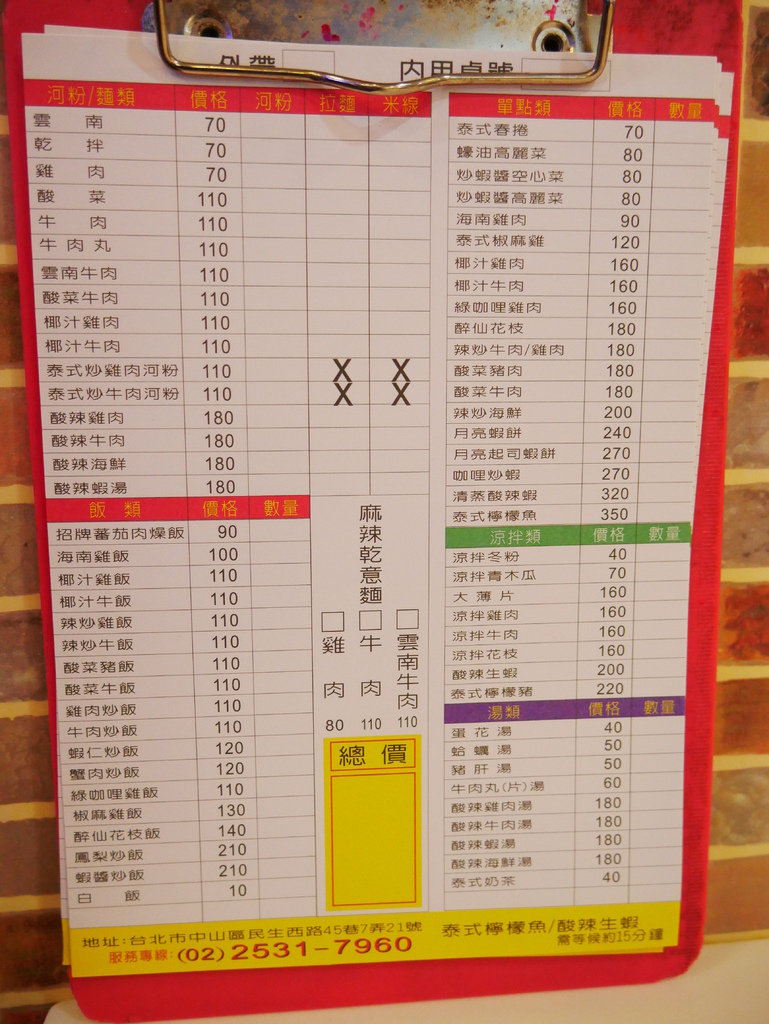 外帶
內用桌號
河粉/麵類 價格 河粉 拉麵 米線
雲南 70
乾拌 70
雞肉 70
酸菜 110
牛肉 110
牛肉丸 110
雲南牛肉 110
酸菜牛肉 110
椰汁雞肉 110
椰汁牛肉 110
泰式炒雞肉河粉 110 X X
泰式炒牛肉河粉 110 X X
酸辣雞肉 180
酸辣牛肉 180
酸辣海鮮 180
酸辣蝦湯 180
飯類 價格 數量
招牌蕃茄肉燥飯 90
海南雞飯 100
椰汁雞飯 110
椰汁牛飯 110
辣炒雞飯 110
辣炒牛飯 110
酸菜豬飯 110
酸菜牛飯 110
雞肉炒飯 110
牛肉炒飯 110
蝦仁炒飯 120
蟹肉炒飯 120
綠咖哩雞飯 110
椒麻雞飯 130
醉仙花枝飯 140
鳳梨炒飯 210
蝦醬炒飯 210
白飯 10
麻辣乾意麵
雞肉 80
牛肉 110
雲南牛肉 110
總價
單點類 價格 數量
泰式春捲 70
蠔油高麗菜 80
炒蝦醬空心菜 80
炒蝦醬高麗菜 80
海南雞肉 90
泰式椒麻雞 120
椰汁雞肉 160
椰汁牛肉 160
綠咖哩雞肉 160
醉仙花枝 180
辣炒牛肉/雞肉 180
酸菜豬肉 180
酸菜牛肉 180
辣炒海鮮 200
月亮蝦餅 240
月亮起司蝦餅 270
咖哩炒蝦 270
清蒸酸辣蝦 320
泰式檸檬魚 350
涼拌類 價格 數量
涼拌冬粉 40
涼拌青木瓜 70
大薄片 160
涼拌雞肉 160
涼拌牛肉 160
涼拌花枝 160
酸辣生蝦 200
泰式檸檬豬 220
湯類 價格 數量
蛋花湯 40
蛤蠣湯 50
豬肝湯 50
牛肉丸(片)湯 60
酸辣雞肉湯 180
酸辣牛肉湯 180
酸辣蝦湯 180
酸辣海鮮湯 180
泰式奶茶 40
地址:台北市中山區民生西路45巷7弄21號
服務專線:(02)2531-7960
泰式檸檬魚/酸辣生蝦
需等候約15分鐘